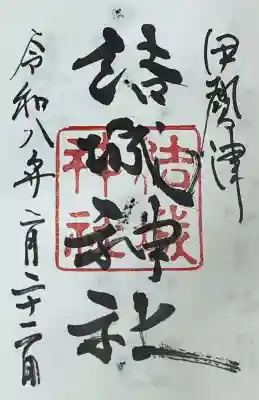 伊賀津
結城神社
結城
神社
令和八年二月二十二日